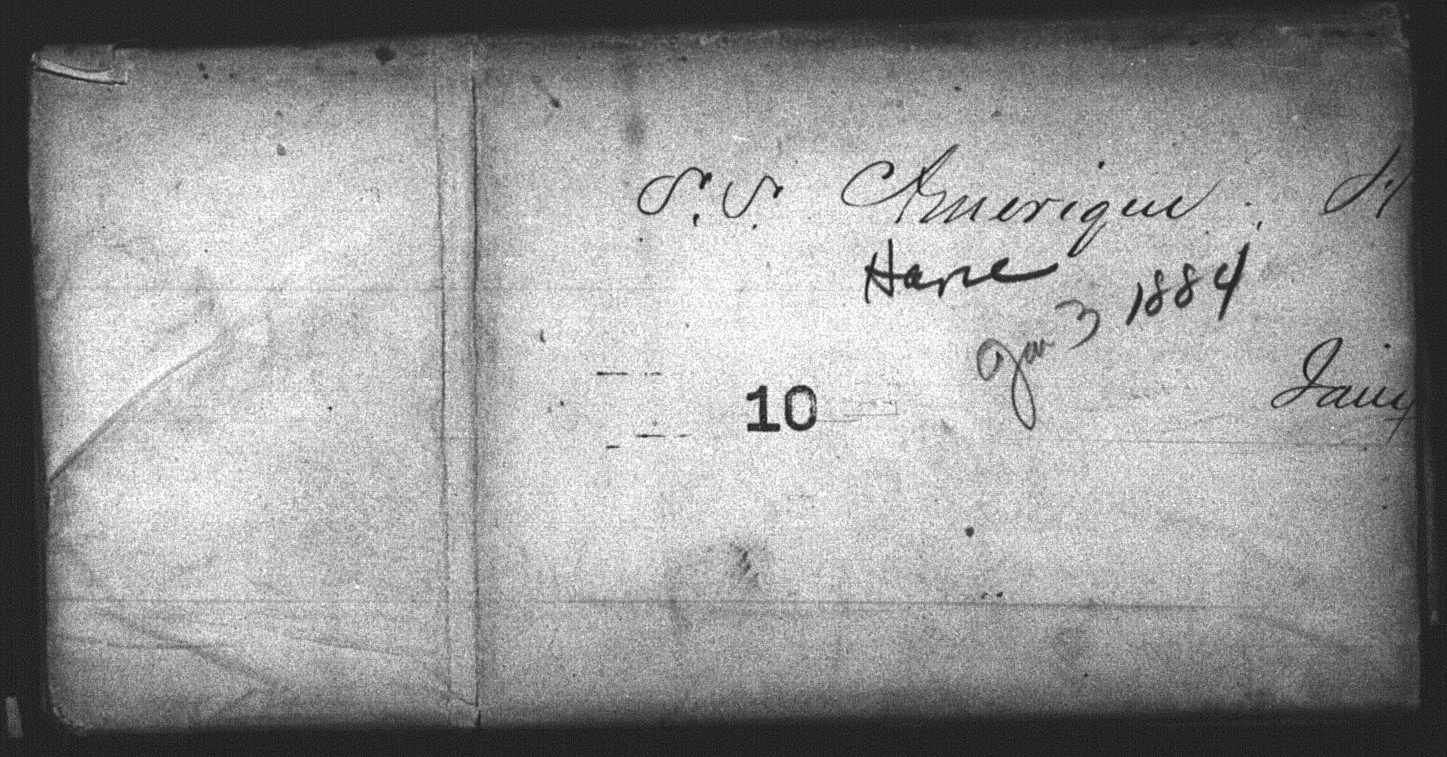 S.S. Amerique.
Havre
Jan 3 1884
10